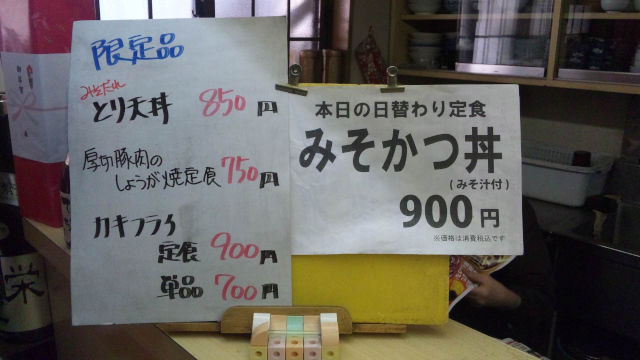 限定品
みそだれ
とり天丼 850円
厚切豚肉の
しょうが焼定食 750円
カキフライ
定食 900円
単品 700円
本日の日替わり定食
みそかつ丼
(みそ汁付)
900円
※価格は消費税込です
栄